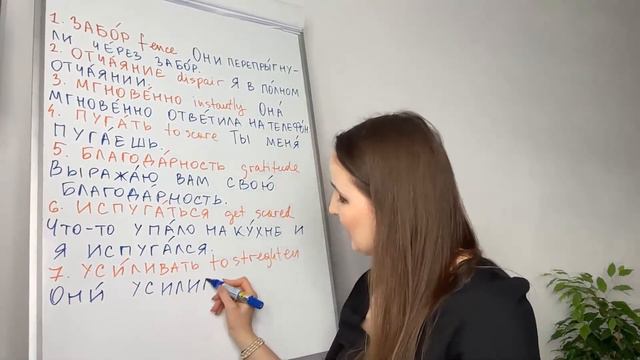 1. ЗАБО́Р fence ОНИ ПЕРЕПРЫ́ГНУ-
ЛИ ЧЕ́РЕЗ ЗАБО́Р.
2. ОТЧА́ЯНИЕ dispair Я В ПО́ЛНОМ
ОТЧА́ЯНИИ.
3. МГНОВЕ́ННО instantly ОНА́
МГНОВЕ́ННО ОТВЕ́ТИЛА НА ТЕЛЕФО́Н
4. ПУГА́ТЬ to scare ТЫ МЕНЯ́
ПУГА́ЕШЬ.
5. БЛАГОДА́РНОСТЬ gratitude
ВЫРАЖА́Ю ВАМ СВОЮ́
БЛАГОДА́РНОСТЬ.
6. ИСПУГА́ТЬСЯ get scared
ЧТО-ТО УПА́ЛО НА КУ́ХНЕ И
Я ИСПУГА́ЛСЯ.
7. УСИ́ЛИВАТЬ to streghten
ОНИ́ УСИЛИ